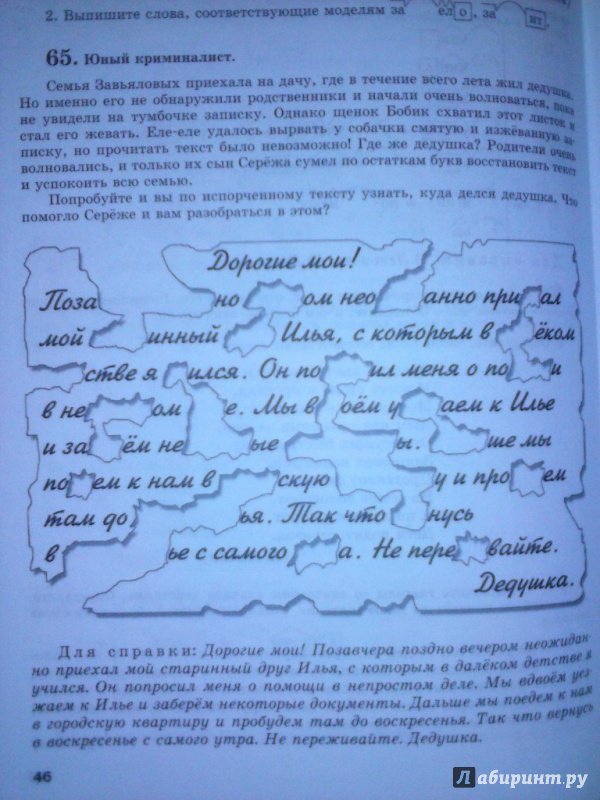 2. Выпишите слова, соответствующие моделям за ел о , за ит .
65. Юный криминалист.
Семья Завьяловых приехала на дачу, где в течение всего лета жил дедушка.
Но именно его не обнаружили родственники и начали очень волноваться, пока
не увидели на тумбочке записку. Однако щенок Бобик схватил этот листок и
стал его жевать. Еле-еле удалось вырвать у собачки смятую и изжёванную за-
писку, но прочитать текст было невозможно! Где же дедушка? Родители очень
волновались, и только их сын Серёжа сумел по остаткам букв восстановить текст
и успокоить всю семью.
Попробуйте и вы по испорченному тексту узнать, куда делся дедушка. Что
помогло Серёже и вам разобраться в этом?
Дорогие мои!
Поза но ом нео анно при ал
мой инный Илья, с которым в ёком
стве я ился. Он по ил меня о по и
в не ом е. Мы в оём у аем к Илье
и за ём не ые ы. ше мы
по ем к нам в скую у и про ем
там до ья. Так что нусь
в ье с самого а. Не пере вайте.
Дедушка.
Для справки: Дорогие мои! Позавчера поздно вечером неожидан-
но приехал мой старинный друг Илья, с которым в далёком детстве я
учился. Он попросил меня о помощи в непростом деле. Мы вдвоём уез-
жаем к Илье и заберём некоторые документы. Дальше мы поедем к нам
в городскую квартиру и пробудем там до воскресенья. Так что вернусь
в воскресенье с самого утра. Не переживайте. Дедушка.
46
Лабиринт.ру